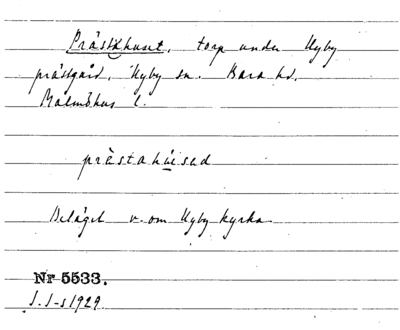 Prästahuset, torp under Hyby
prästgård, Hyby sn. Bara hd.
Malmöhus l.
prèstahúsed
Beläget v. om Hyby kyrka.
Nr 5533.
1929.